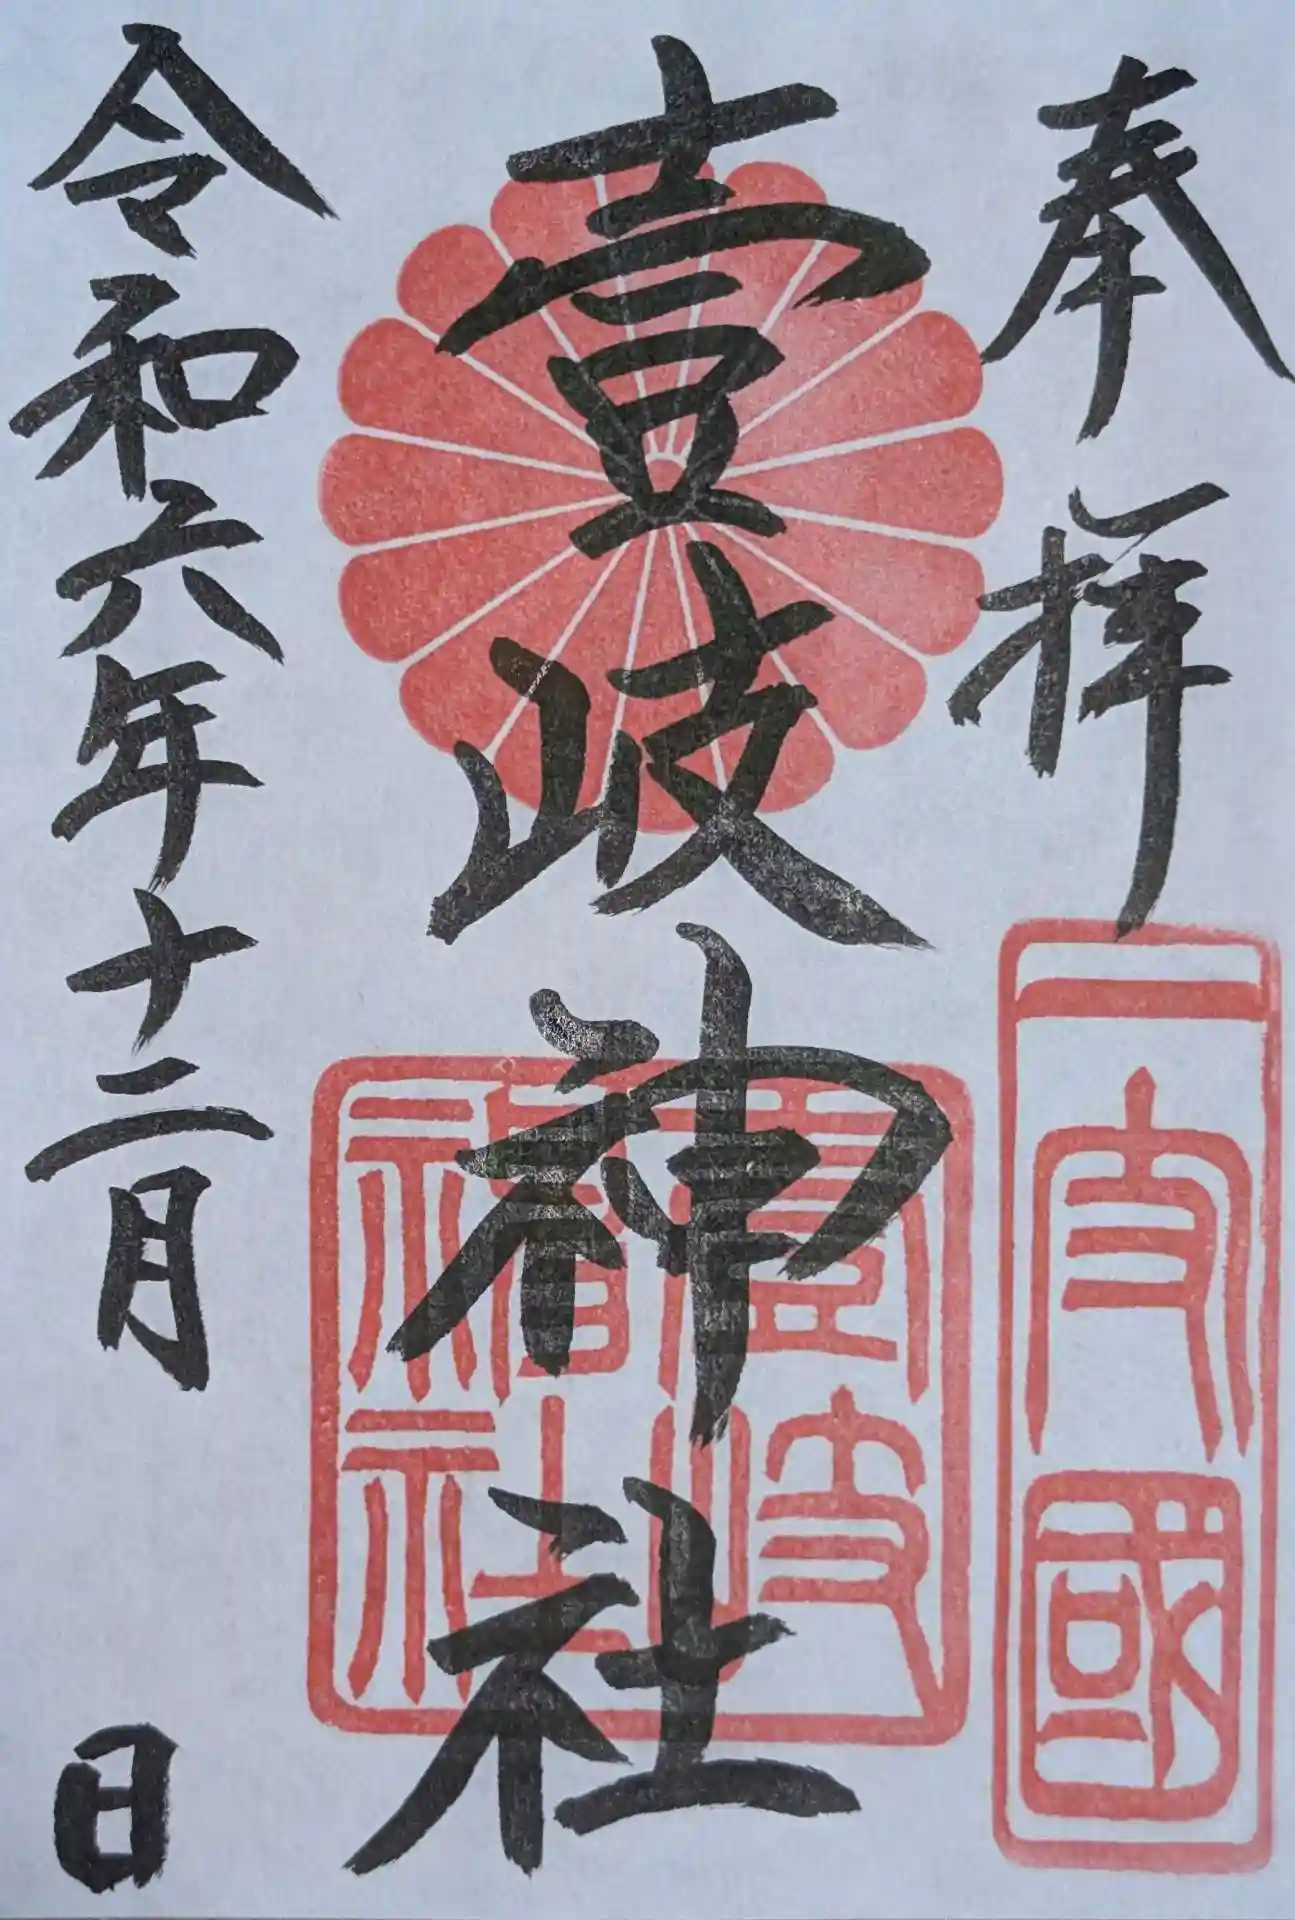 奉拝
一支國
壹岐神社
壹岐神社
令和六年十二月 日